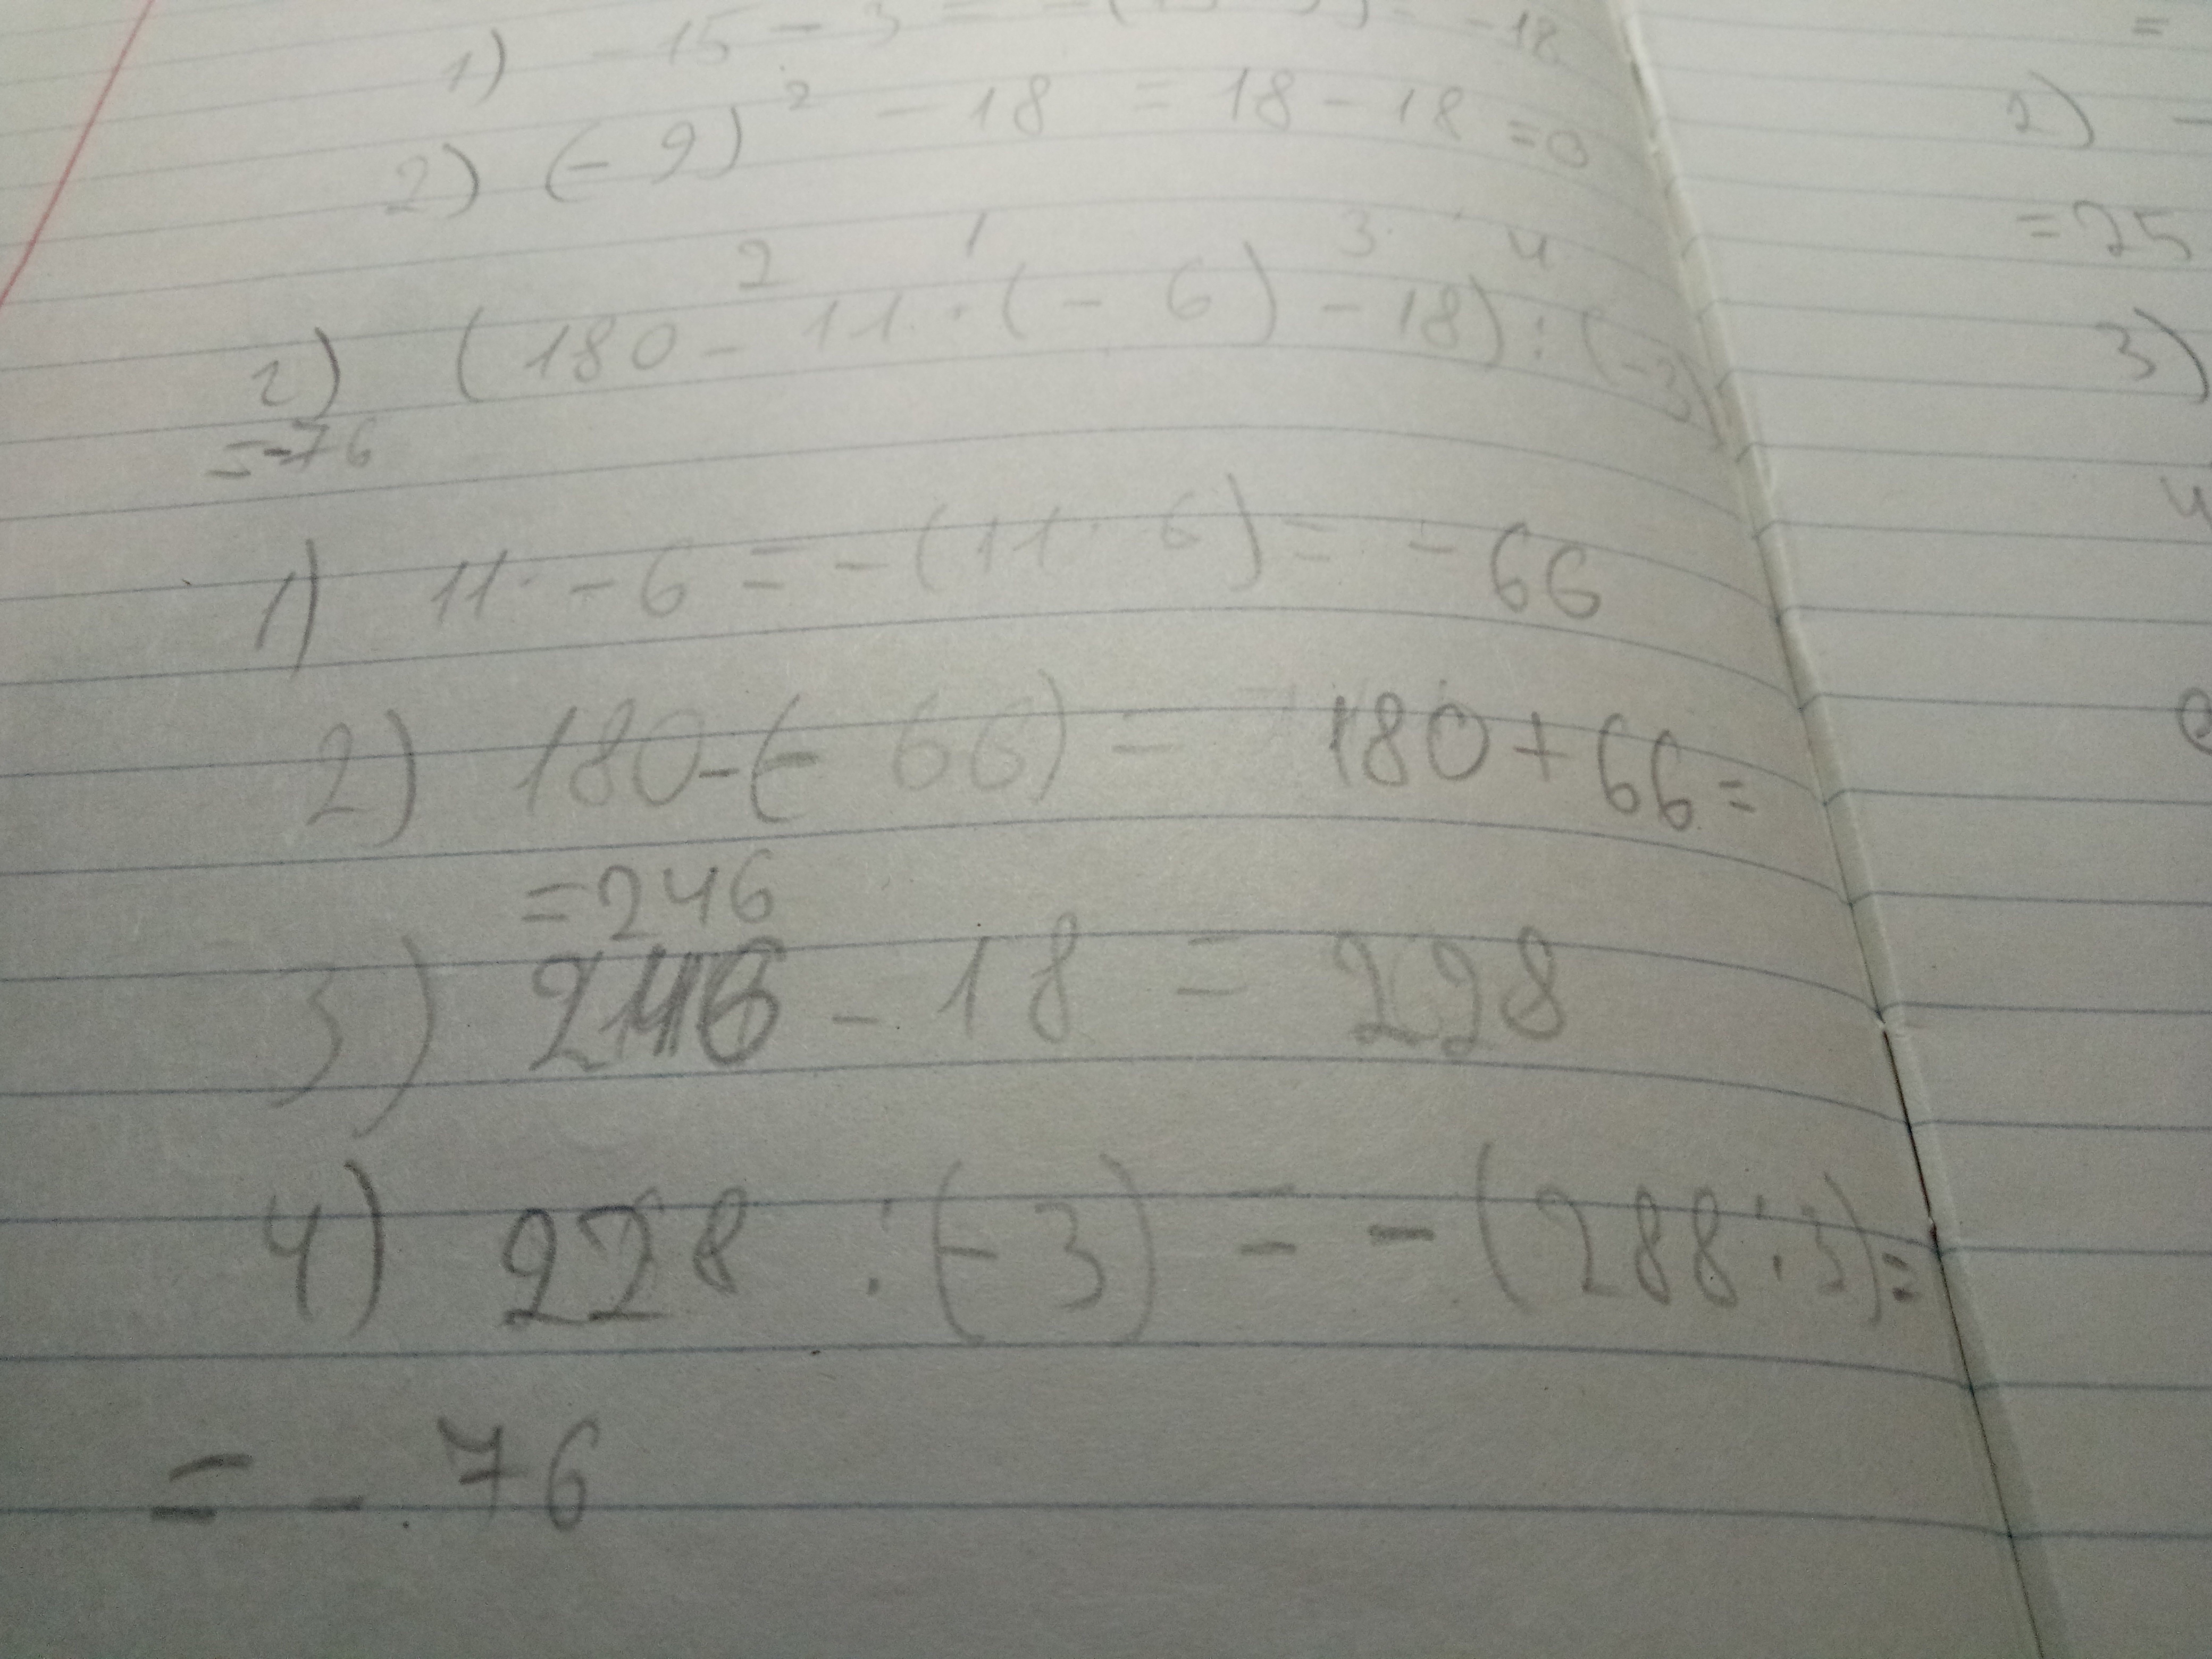 1) -15 - 3 = -(15 3) = -18
2) (-9)² - 18 = 18 - 18 = 0
2 1 3 4
2) (180 - 11 · (- 6) - 18) : (-3)
= -76
1) 11 · - 6 = - (11 · 6) = - 66
2) 180 - (- 66) = 180 + 66 =
= 246
3) 246 - 18 = 228
4) 228 : (-3) = - (288 : 3) =
= - 76
=
2) -
= 25
3)
4